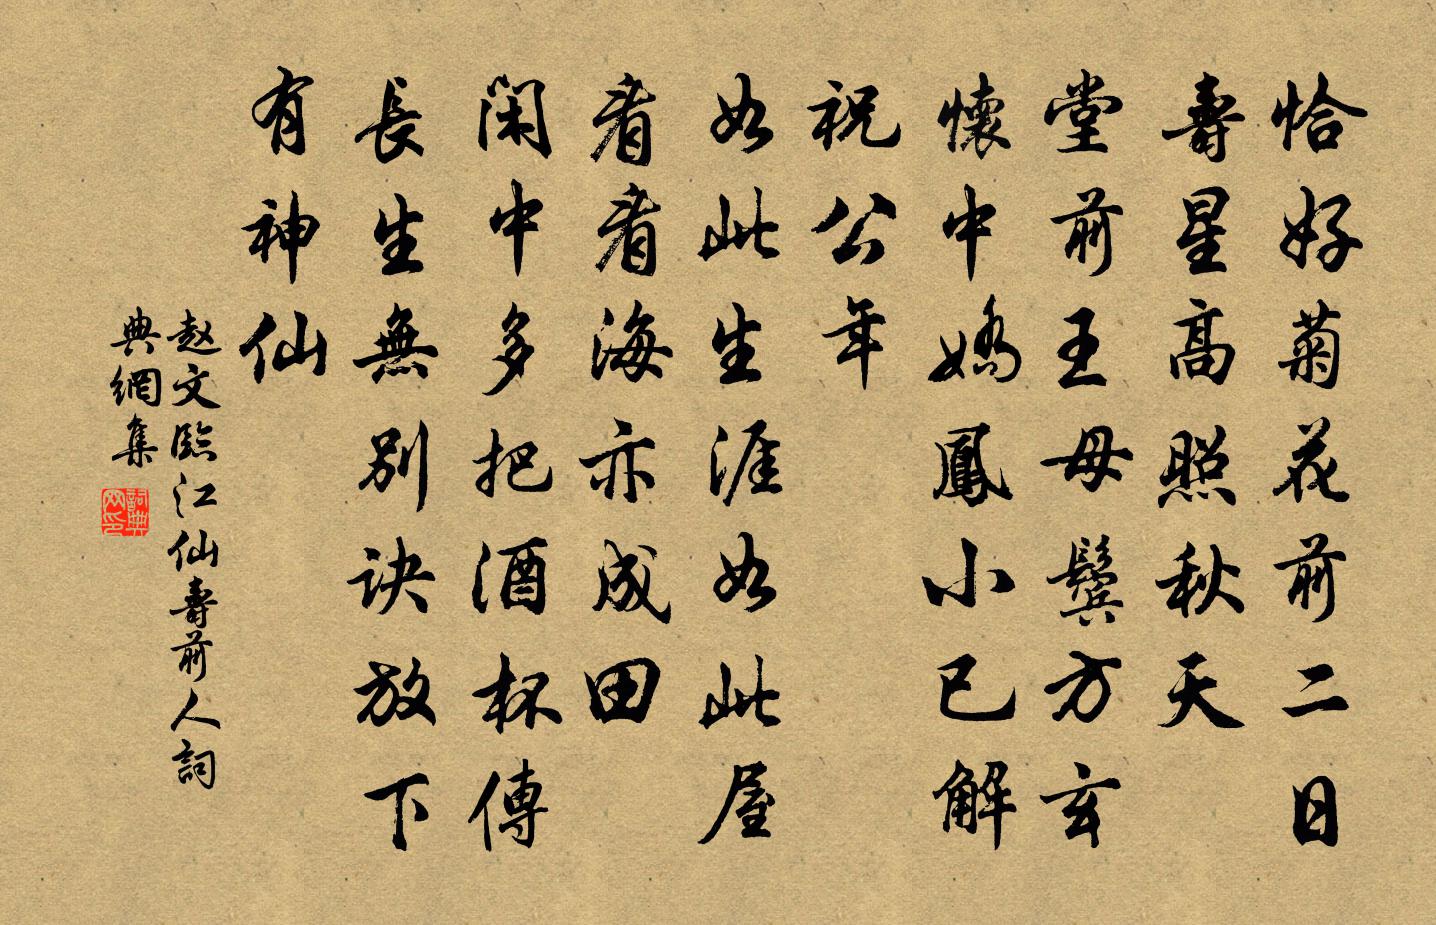 恰好菊花前二日
壽星高照秋天
堂前王母鬓方玄
懷中嬌鳳小已解
祝公年
如此生涯如此屋
看看海亦成田
閑中多把酒杯傳
長生無別訣放下
有神仙
赵文臨江仙壽前人詞
典網集
詞典网印